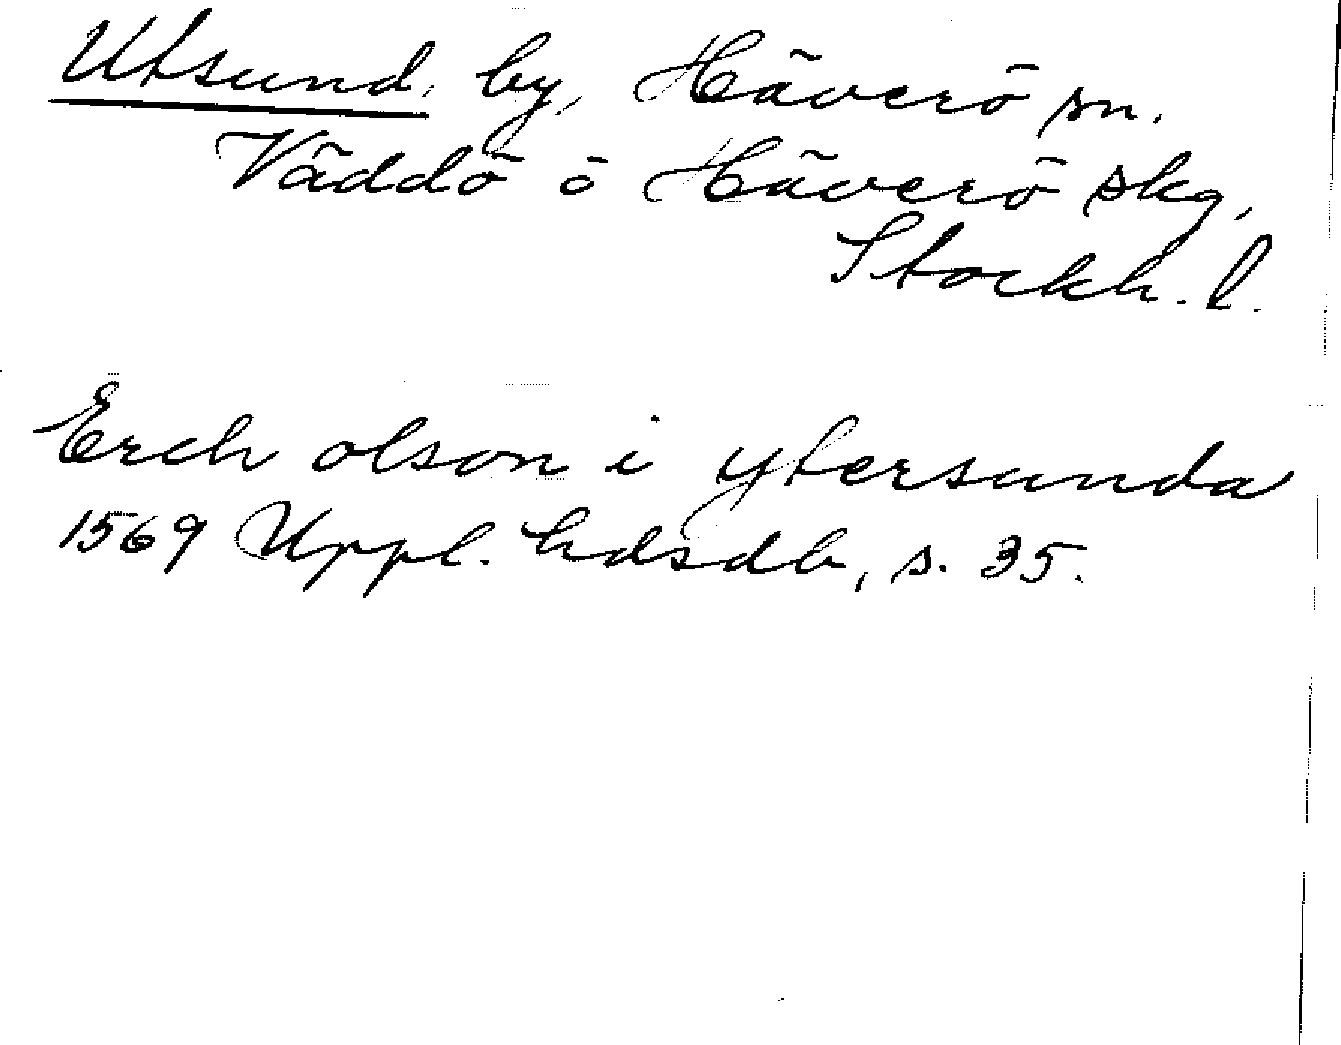 Utsund, by, Häverö sn.
Väddö o Häverö skg,
Stockh. l.
Erch olson i ytersunda
1569 Uppl. hdsdb, s. 35.